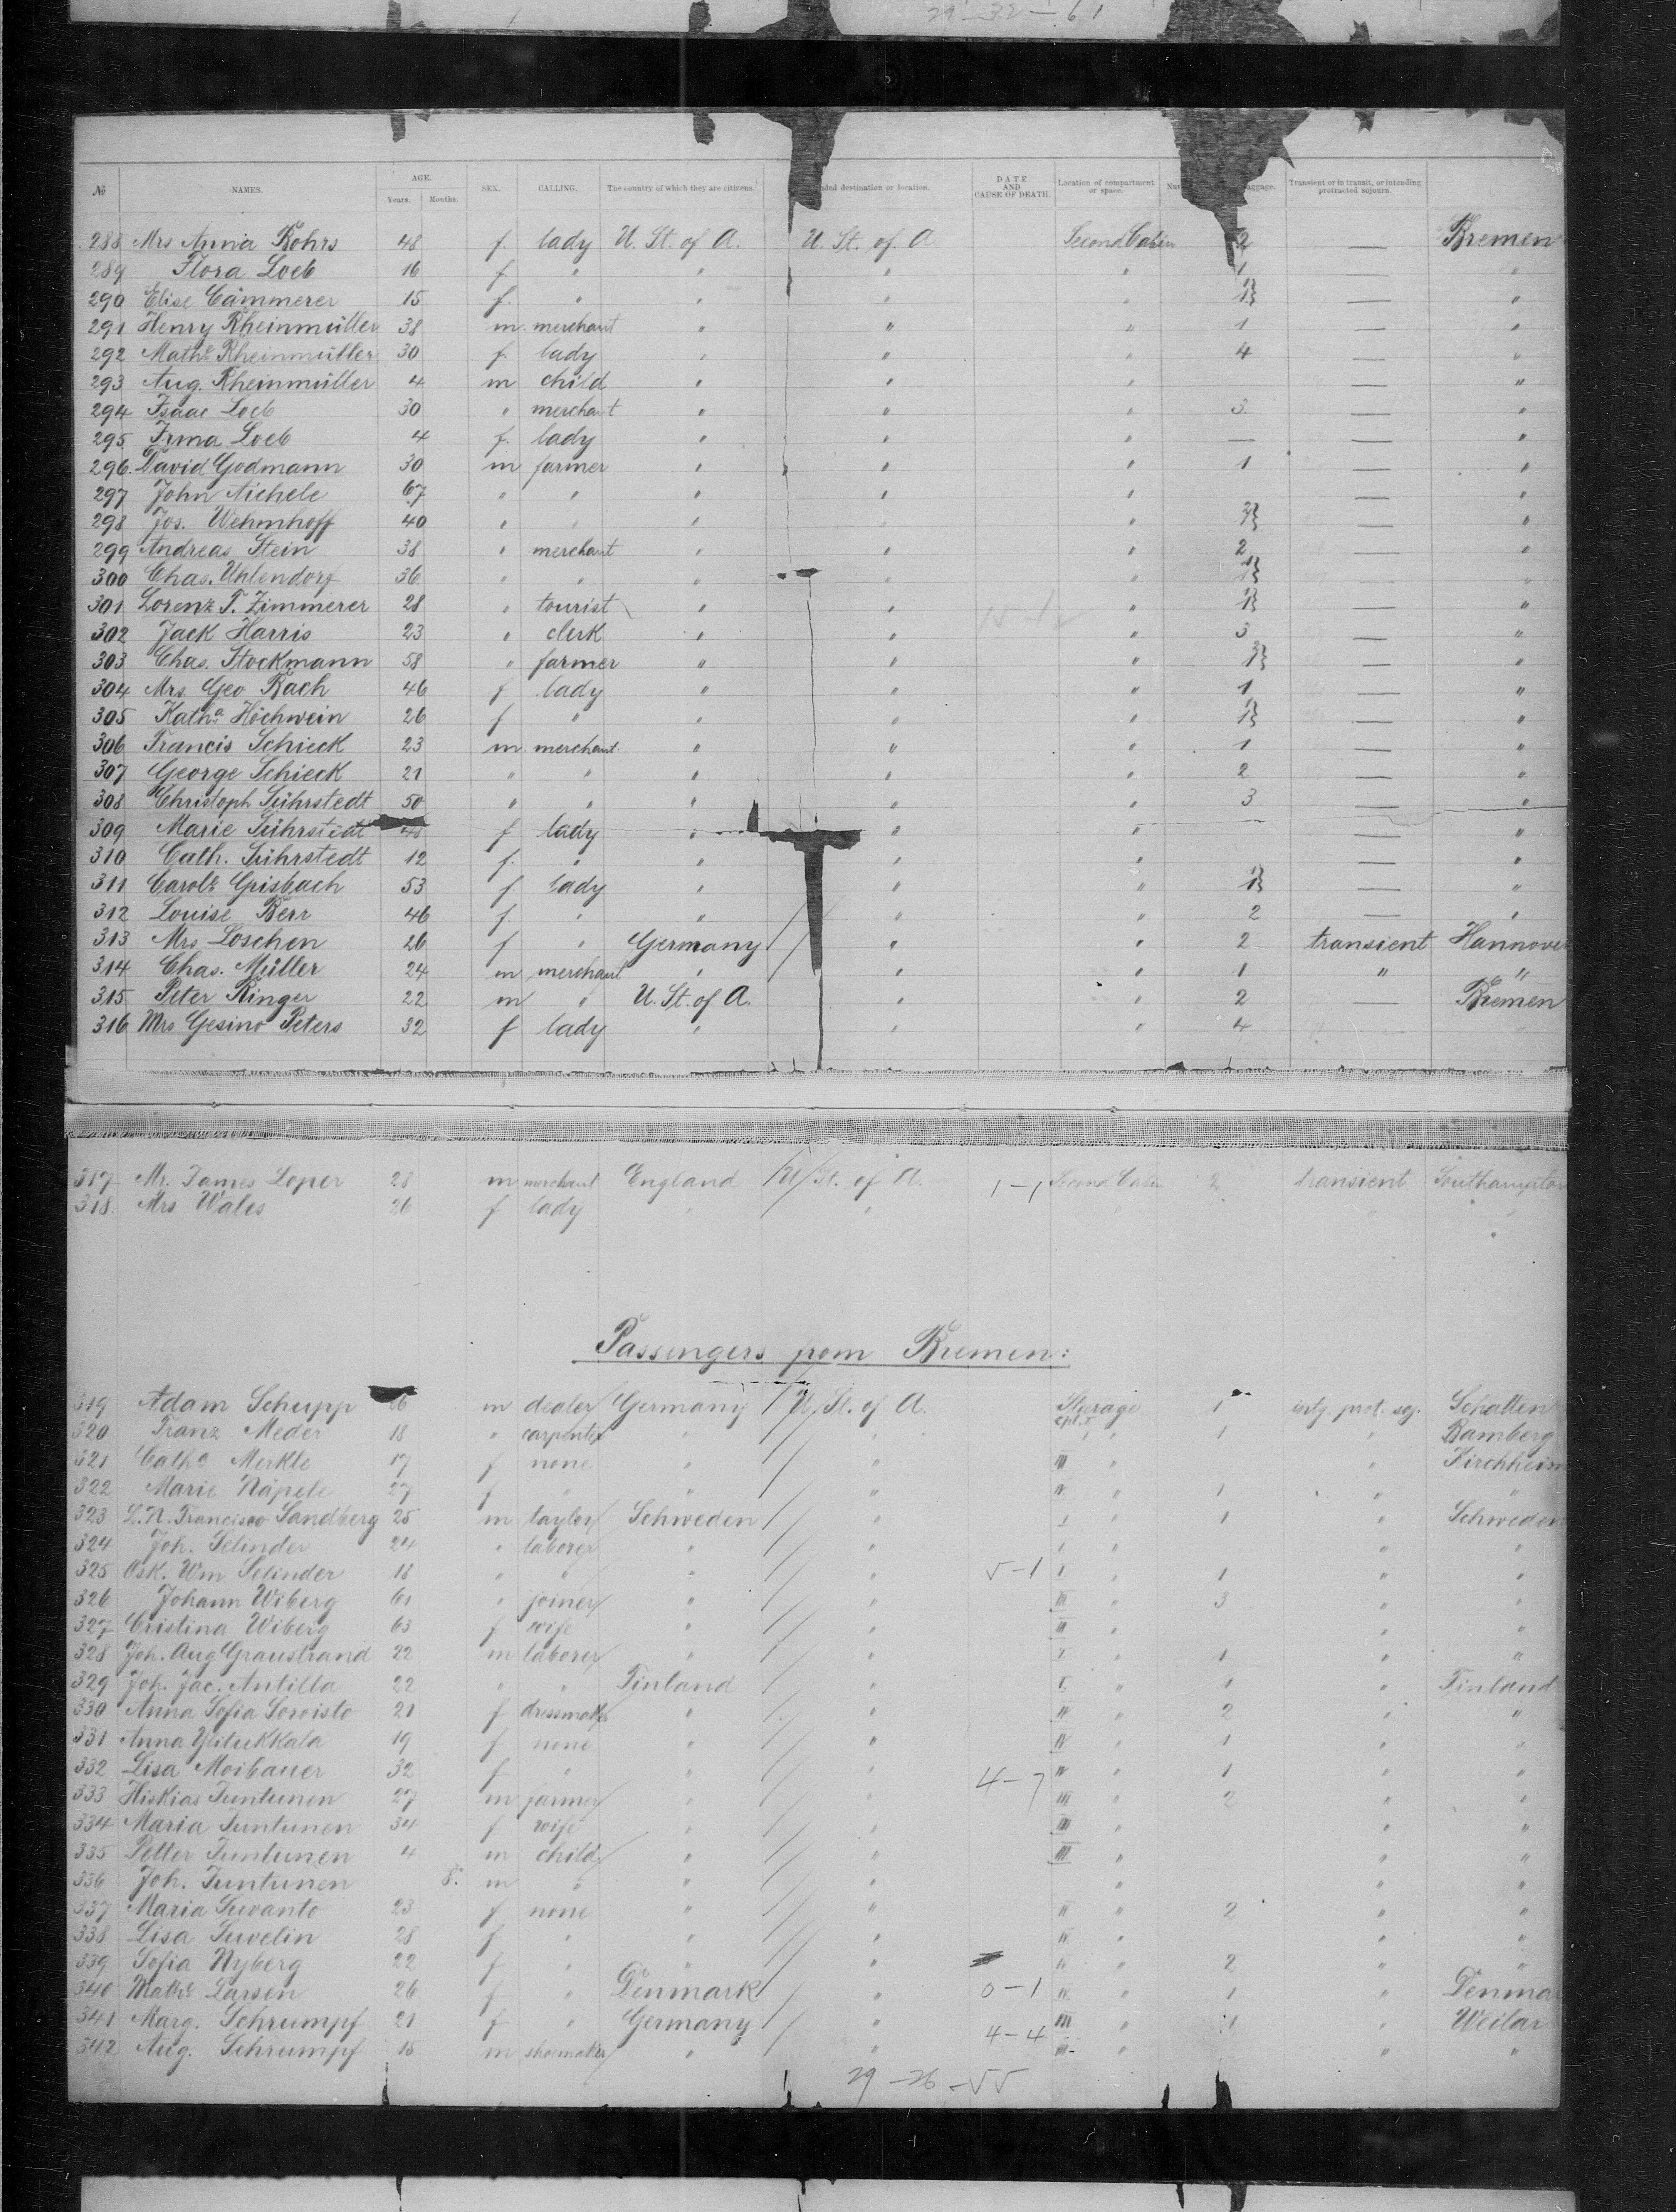 29-32-61
№ NAMES. AGE. Years. Months. SEX. CALLING. The country of which they are citizens. ded destination or location. DATE AND CAUSE OF DEATH. Location of compartment or space. aggage. Transient or in transit, or intending protracted sojourn.
288 Mrs Anna Rohrs 48 f. lady U. St. of A. U. St. of A Second Cabin 2 — Bremen
289 Flora Loeb 16 f. " " " " 1 — "
290 Elise Cämmerer 15 f. " " " " 1} — "
291 Henry Rheinmüller 38 m. merchant " " " 1 — "
292 Mathe Rheinmüller 30 f. lady " " " 4 — "
293 Aug. Rheinmüller 4 m child " " " — "
294 Isaac Loeb 30 " merchant " " " 3. — "
295 Irma Loeb 4 f. lady " " " — — "
296. David Godmann 30 m farmer " " " 1 — "
297 John Aichele 67 " " " " " — "
298 Jos. Wehmhoff 40 " " " " " — "
299 Andreas Stein 38 " merchant " " " 2 — "
300 Chas. Uhlendorf 36 " " " " " 1} — "
301 Lorenz T. Zimmerer 28 " tourist " " " 1} — "
302 Jack Harris 23 " clerk " " " 3 — "
303 Chas. Stockmann 58 " farmer " " " — "
304 Mrs. Geo Rach 46 f lady " " " 1 — "
305 Katha Höchwein 26 f " " " " 1} — "
306 Francis Schieck 23 m merchant " " " 1 — "
307 George Schieck 21 " " " " " 2 — "
308 Christoph Sührstedt 50 " " " " " 3 — "
309 Marie Sührstedt f lady " " " — "
310 Cath. Sührstedt 12 f. " " " " — "
311 Carole Grisbach 53 f lady " " " 1} — "
312 Louise Berr 46 f. " " " " 2 — "
313 Mrs Loschen 26 f " Germany " " 2 transient Hannover
314 Chas. Müller 24 m merchant " " " 1 " "
315 Peter Ringer 22 m " U. St. of A. " " 2 — Bremen
316 Mrs Gesino Peters 32 f lady " " " 4 — "
317 Mr. James Loper 28 m merchant England U. St. of A. 1-1 Second Cabin 2 transient Southampton
318. Mrs Wales 26 f lady " " " " "
Passengers from Bremen:
319 Adam Schupp 26 m dealer Germany U. St. of A. Sterage cpt. I 1 intg. prot. soj. Schotten
320 Franz Meder 18 " carpenter " " " " 1 " Bamberg
321 Catha Merkle 17 f none " " III " " Kirchheim
322 Marie Näpele 27 f " " " IV. " 1 " "
323 L. N. Francisco Sandberg 25 m taylor Schweden " I " 1 " Schweden
324 Joh. Selinder 24 " laborer " " I " " "
325 Osk. Wm Selinder 18 " " " " 5-1 I. " 1 " "
326 Johann Wiberg 61 " joiner " " III " 3 " "
327 Cristina Wiberg 63 f wife " " III " " "
328 Joh. Aug Graustrand 22 m laborer " " I. " 1 " "
329 Joh. Jac. Antilla 22 " " Finland " I. " 1 " Finland
330 Anna Sofia Soroisto 21 f dressmaker " " IV " 2 " "
331 Anna Ylitukkala 19 f none " " IV " 1 " "
332 Lisa Moibauer 32 f " " " 4-7 IV " 1 " "
333 Hiskias Juntunen 27 m farmer " " III " 2 " "
334 Maria Juntunen 34 f wife " " III " " "
335 Petter Juntunen 4 m child " " III " " "
336 Joh. Juntunen 8. m " " " " " "
337 Maria Suvanto 23 f none " " IV " 2 " "
338 Lisa Juvelin 28 f " " " IV " " "
339 Sofia Nyberg 22 f " " " IV " 2 " "
340 Mathe Larsen 26 f " Denmark " 0-1 IV. " 1 " Denma
341 Marg. Schrumpf 21 f " Germany " 4-4 III " 1 " Weilar
342 Aug. Schrumpf 15 m shoemaker " " III " " "
29-26-55